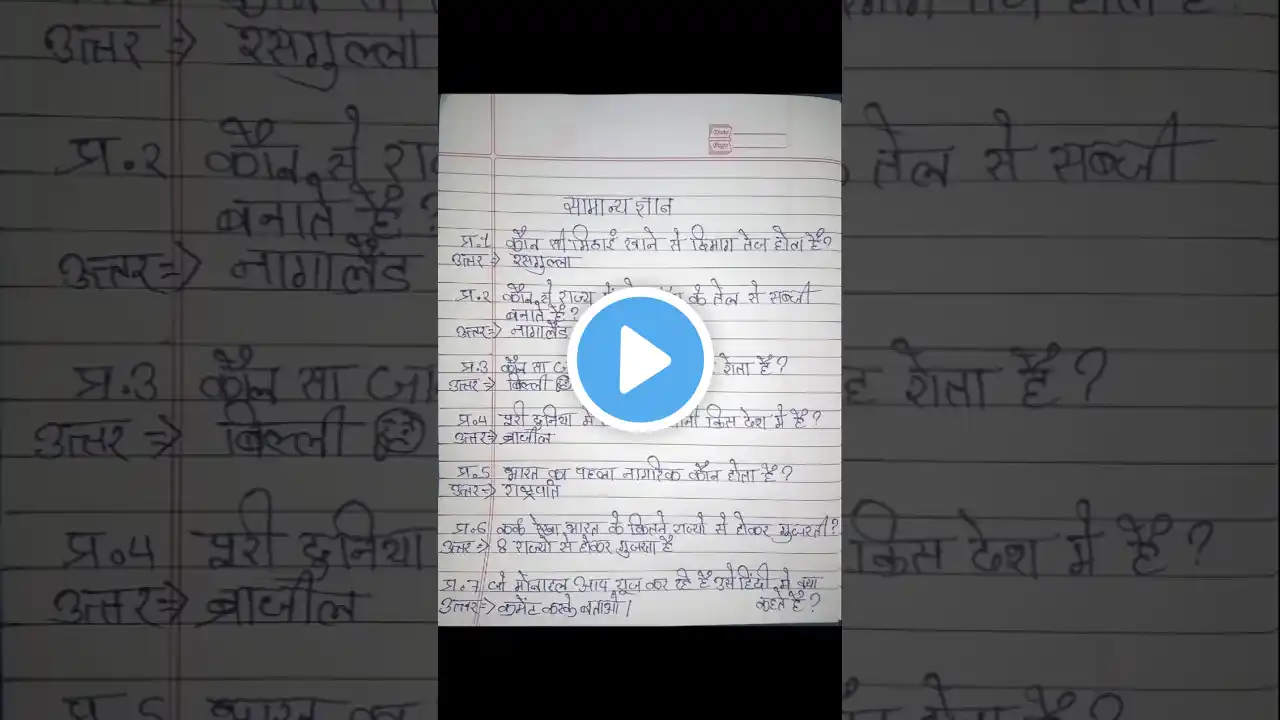 Date
Page
सामान्य ज्ञान
प्र.1 कौन सी मिठाई खाने से दिमाग तेज होता है?
उत्तर => रसगुल्ला
प्र.2 कौन से राज्य के तेल से सब्जी
बनाते है?
उत्तर => नागालैंड
प्र.3 कौन सा रोता है?
उत्तर => बिल्ली
प्र.4 पूरी दुनिया में किस देश में है?
उत्तर => ब्राजील
प्र.5 भारत का पहला नागरिक कौन होता है?
उत्तर => राष्ट्रपति
प्र.6 कर्क रेखा भारत के कितने राज्यो से होकर गुजरती?
उत्तर => 8 राज्यो से होकर गुजरता है
प्र.7 जो मोबाइल आप यूज कर रहे हैं उसे हिंदी में क्या
कहते है?
उत्तर => कमेंट करके बताओ।